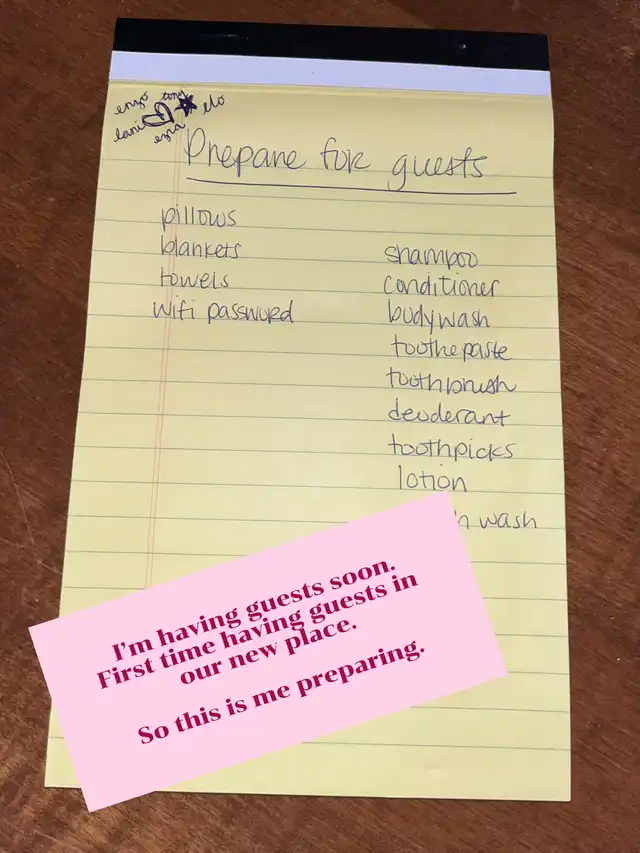 enzo
tone
elo
lani
ezra
Prepare for guests
pillows
blankets
towels
wifi password
shampoo
conditioner
bodywash
toothepaste
toothbrush
deoderant
toothpicks
lotion
wash
I'm having guests soon.
First time having guests in
our new place.
So this is me preparing.